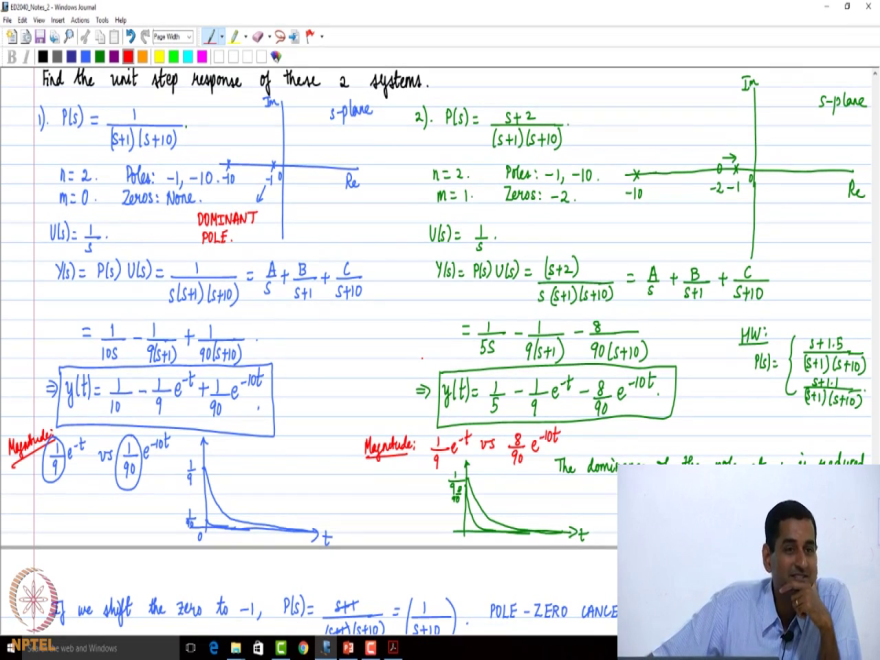 ED2040_Notes_2 - Windows Journal
File Edit View Insert Actions Tools Help
Page Width
B I
Find the unit step response of these 2 systems.
1). P(s) = 1 / (s+1)(s+10)
Im
s-plane
-10 -1 0
Re
n = 2. Poles: -1, -10.
m = 0. Zeros: None.
DOMINANT
POLE.
U(s) = 1/s.
Y(s) = P(s) U(s) = 1 / s(s+1)(s+10) = A/s + B/s+1 + C/s+10
= 1/10s - 1/9(s+1) + 1/90(s+10).
⇒ y(t) = 1/10 - 1/9 e^-t + 1/90 e^-10t.
Magnitude:
1/9 e^-t vs 1/90 e^-10t
1/9
1/90
0
t
2). P(s) = s+2 / (s+1)(s+10).
Im
s-plane
-10 -2 -1 0
Re
n = 2. Poles: -1, -10.
m = 1. Zeros: -2.
U(s) = 1/s.
Y(s) = P(s) U(s) = (s+2) / s(s+1)(s+10) = A/s + B/s+1 + C/s+10
= 1/5s - 1/9(s+1) - 8/90(s+10)
⇒ y(t) = 1/5 - 1/9 e^-t - 8/90 e^-10t.
HW:
P(s) = { s+1.5 / (s+1)(s+10)
s+1.1 / (s+1)(s+10).
Magnitude: 1/9 e^-t vs 8/90 e^-10t
1/9
8/90
t
The dominance of the pole at -1 is reduced
If we shift the zero to -1, P(s) = s+1 / (s+1)(s+10) = (1 / s+10). POLE-ZERO
NPTEL
the web and Windows